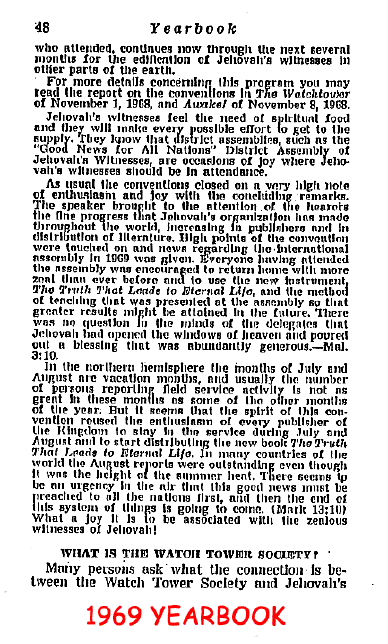 48 Yearbook
who attended, continues now through the next several
months for the edification of Jehovah's witnesses in
other parts of the earth.
For more details concerning this program you may
read the report on the conventions in The Watchtower
of November 1, 1968, and Awake! of November 8, 1968.
Jehovah's witnesses feel the need of spiritual food
and they will make every possible effort to get to the
supply. They know that district assemblies, such as the
"Good News for All Nations" District Assembly of
Jehovah's Witnesses, are occasions of joy where Jeho-
vah's witnesses should be in attendance.
As usual the conventions closed on a very high note
of enthusiasm and joy with the concluding remarks.
The speaker brought to the attention of the hearers
the fine progress that Jehovah's organization has made
throughout the world, increasing in publishers and in
distribution of literature. High points of the convention
were touched on and news regarding the international
assembly in 1969 was given. Everyone having attended
the assembly was encouraged to return home with more
zeal than ever before and to use the new instrument,
The Truth That Leads to Eternal Life, and the method
of teaching that was presented at the assembly so that
greater results might be attained in the future. There
was no question in the minds of the delegates that
Jehovah had opened the windows of heaven and poured
out a blessing that was abundantly generous.—Mal.
3:10.
In the northern hemisphere the months of July and
August are vacation months, and usually the number
of persons reporting field service activity is not as
great in these months as some of the other months
of the year. But it seems that the spirit of this con-
vention roused the enthusiasm of every publisher of
the Kingdom to stay in the service during July and
August and to start distributing the new book The Truth
That Leads to Eternal Life. In many countries of the
world the August reports were outstanding even though
it was the height of the summer heat. There seems to
be an urgency in the air that this good news must be
preached to all the nations first, and then the end of
this system of things is going to come. (Mark 13:10)
What a joy it is to be associated with the zealous
witnesses of Jehovah!
WHAT IS THE WATCH TOWER SOCIETY?
Many persons ask what the connection is be-
tween the Watch Tower Society and Jehovah's
1969 YEARBOOK